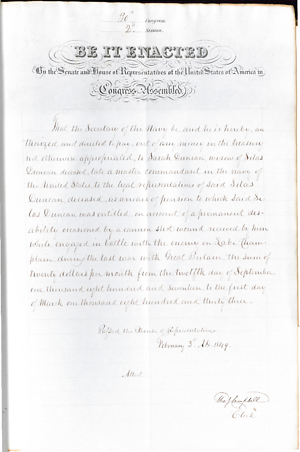 30th Congress,
2d Session.
BE IT ENACTED
By the Senate and House of Representatives of the United States of America in
Congress Assembled,
That the Secretary of the Navy be, and he is hereby, au
thorized and directed to pay, out of any money in the treasu
ry not otherwise appropriated, to Sarah Duncan, widow of Silas
Duncan deceased, late a master commandant in the navy of
the United States to the legal representatives of said Silas
Duncan, deceased, as arrears of pension to which said Si
las Duncan was entitled, on account of a permanent dis-
ability occasioned by a cannon shot wound received by him
while engaged in battle with the enemy on Lake Cham
plain during the last war with Great Britain, the sum of
twenty dollars per month from the twelfth day of September
one thousand eight hundred and seventeen to the first day
of March one thousand eight hundred and thirty three.
Passed the House of Representatives
February 3d, AD. 1849.
Attest
Tho J Campbell
Clerk